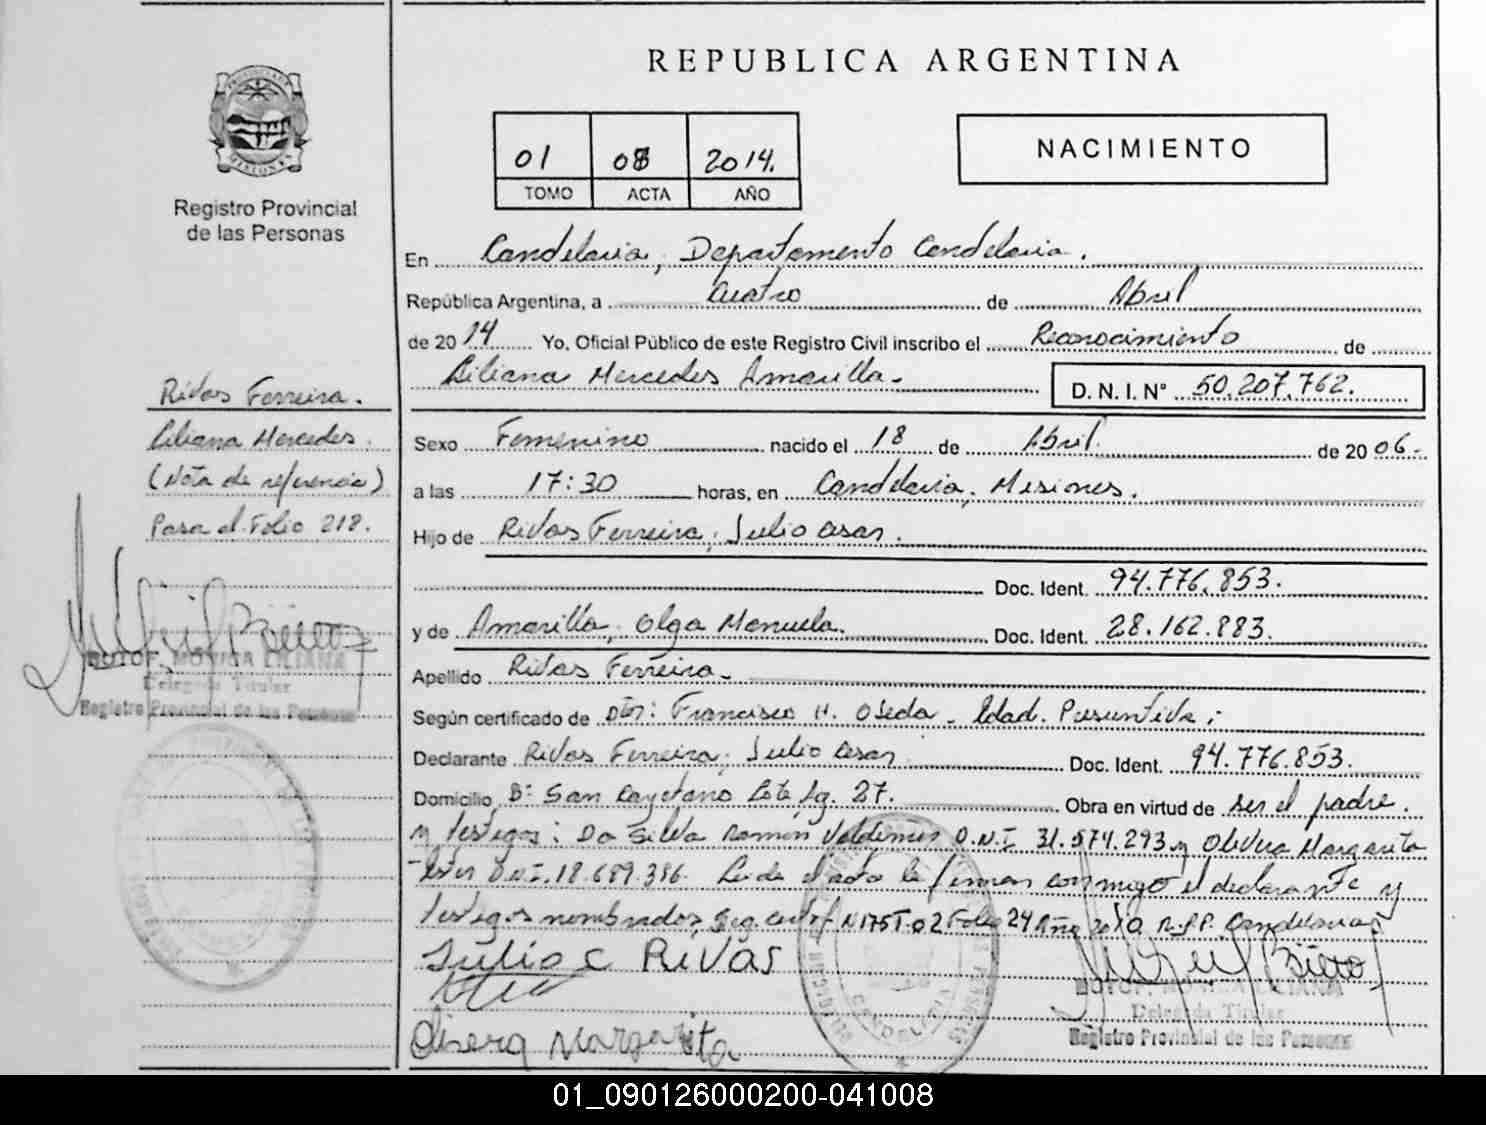 REPUBLICA ARGENTINA
01 08 2014.
TOMO ACTA AÑO
NACIMIENTO
Registro Provincial
de las Personas
En Candelaria, Departamento Candelaria.
República Argentina, a cuatro de Abril
de 2014 Yo, Oficial Público de este Registro Civil inscribo el Reconocimiento de
Liliana Mercedes Amarilla.
D. N. I. N° 50.207.762.
Rivas Ferreira.
Liliana Mercedes.
(Nota de referencia)
Pasa al Folio 218.
Sexo Femenino nacido el 18 de Abril de 2006.
a las 17:30 horas, en Candelaria, Misiones.
Hijo de Rivas Ferreira, Julio Cesar.
Doc. Ident. 94.776.853.
y de Amarilla, Olga Manuela. Doc. Ident. 28.162.883.
Apellido Rivas Ferreira.
Según certificado de Francisco H. Ojeda. Edad Presuntiva;
Declarante Rivas Ferreira, Julio Cesar Doc. Ident. 94.776.853.
Domicilio B° San Cayetano Lote 27. Obra en virtud de ser el padre.
y testigos: Da Silva Ramón Valdemar D.N.I 31.574.293 y Olivera Margarita
Ester D.N.I. 18.689.386. Leida el acta la firman conmigo el declarante y
testigos nombrados, Seg. certif N175 T.02 Folio 24 Año 2010 R.P.P. Candelaria
Julio C Rivas
Margarita
BUTOF, MONICA LILIANA
Delegada Titular
Registro Provincial de las Personas
BUTOF, MONICA LILIANA
Delegada Titular
Registro Provincial de las Personas
01_090126000200-041008